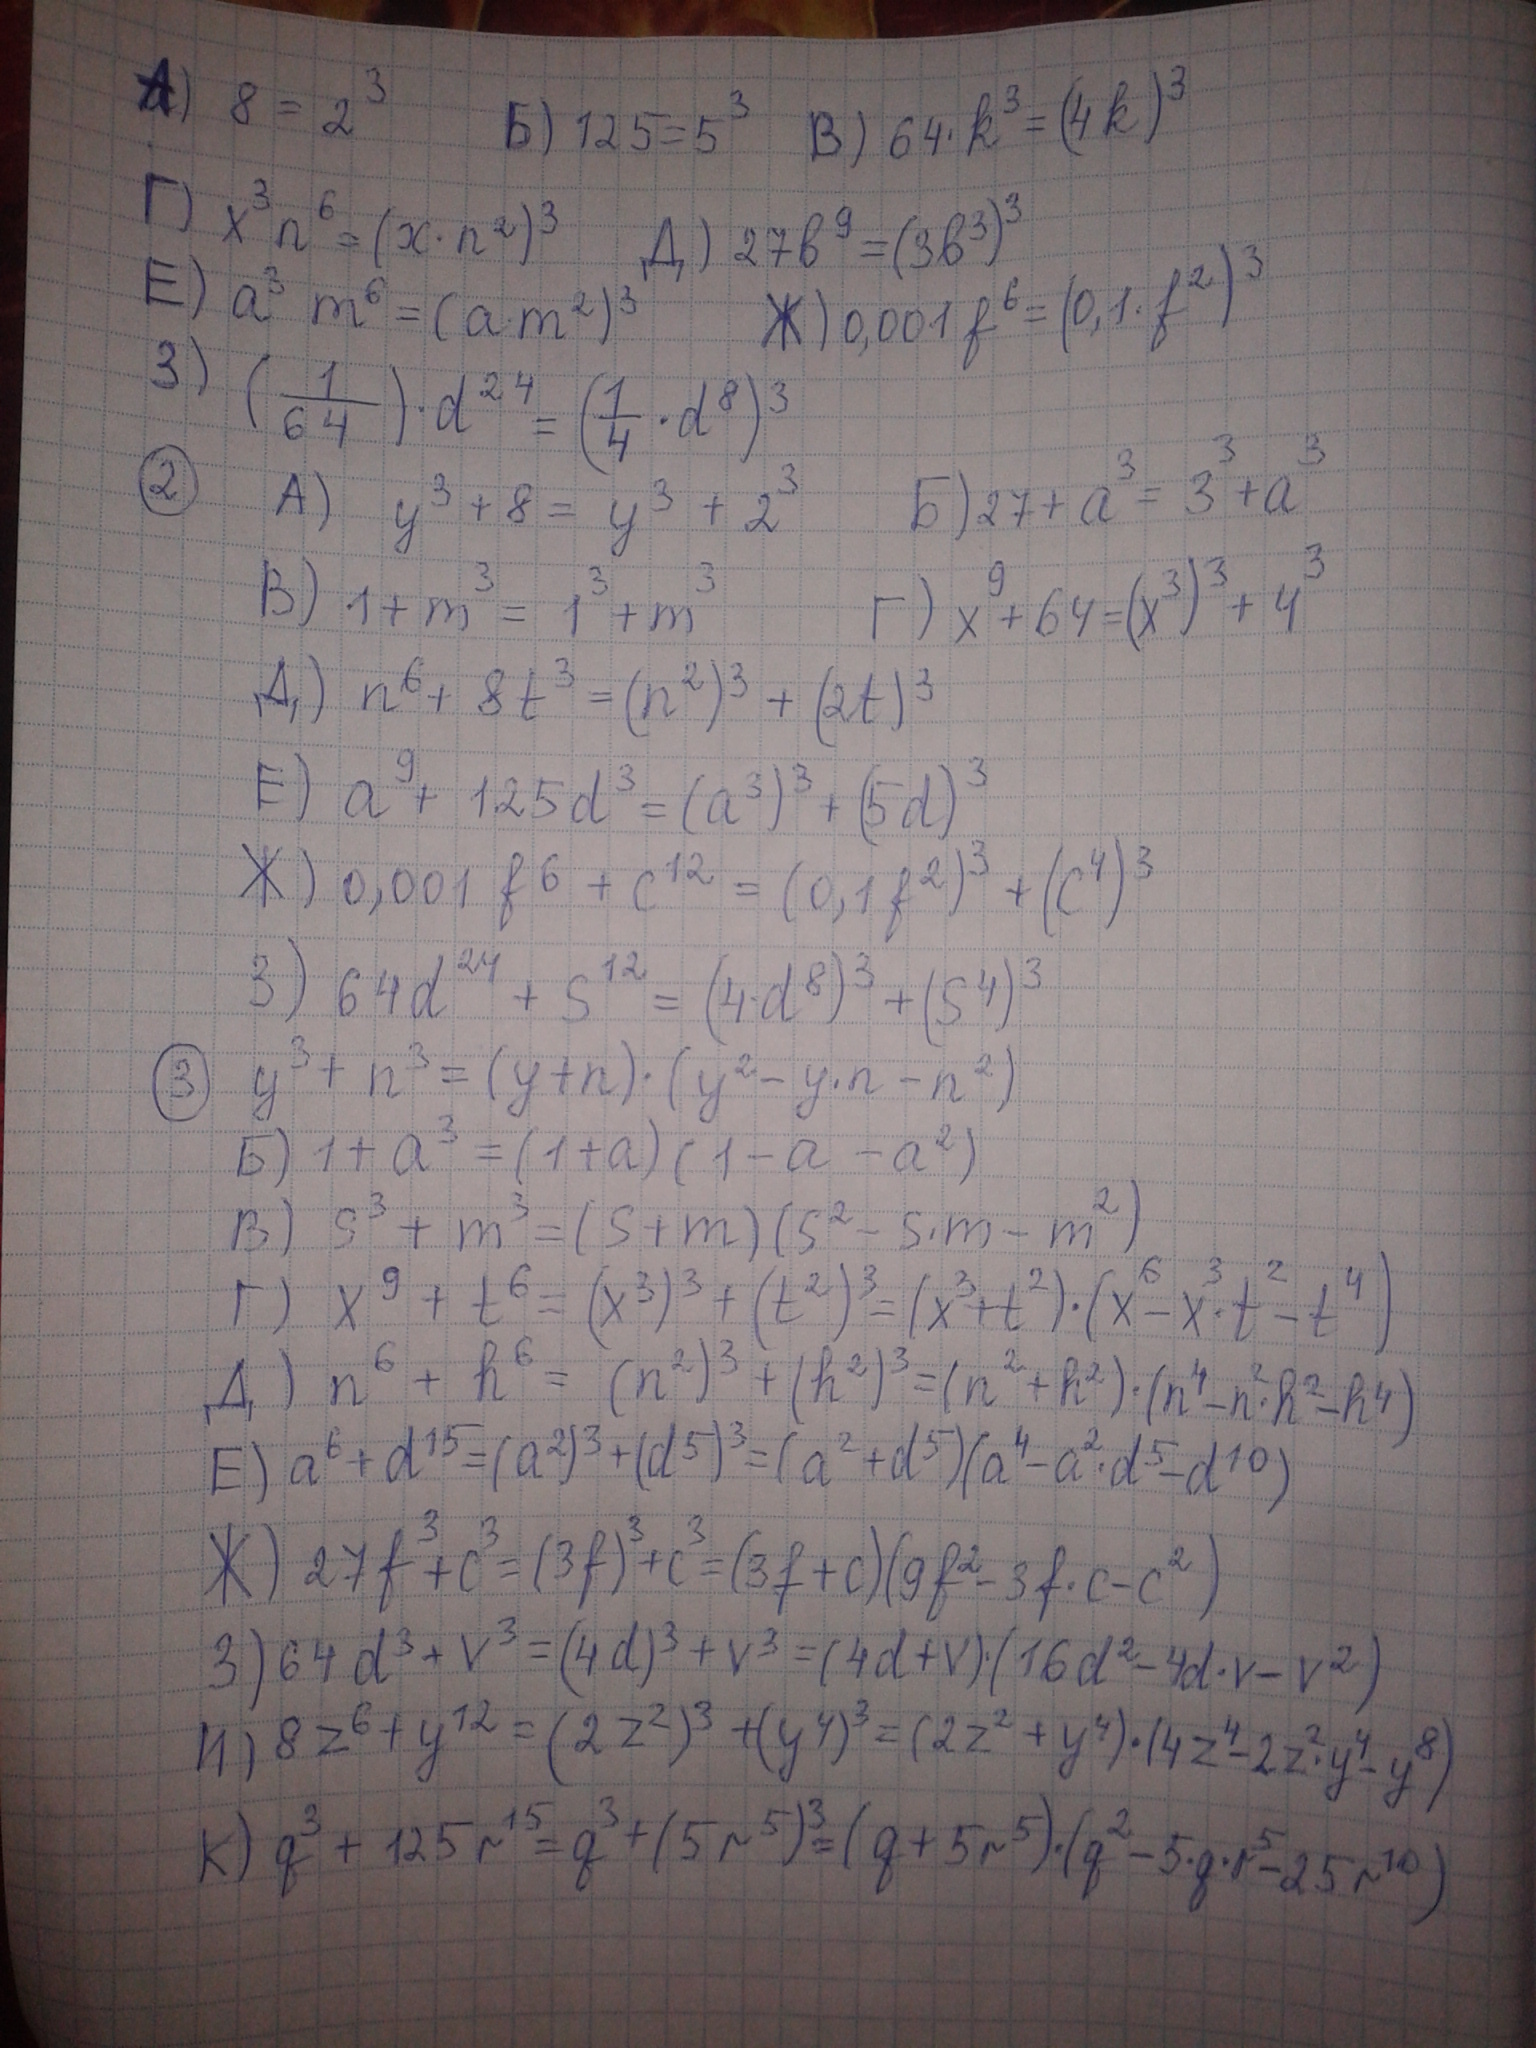 А) 8 = 2³ Б) 125 = 5³ В) 64·k³ = (4k)³
Г) x³n⁶ = (x·n²)³ Д) 27b⁹ = (3b³)³
Е) a³ m⁶ = (a·m²)³ Ж) 0,001f⁶ = (0,1·f²)³
З) (1/64)·d²⁴ = (1/4·d⁸)³
② А) y³ + 8 = y³ + 2³ Б) 27 + a³ = 3³ + a³
В) 1 + m³ = 1³ + m³ Г) x⁹ + 64 = (x³)³ + 4³
Д) n⁶ + 8t³ = (n²)³ + (2t)³
Е) a⁹ + 125d³ = (a³)³ + (5d)³
Ж) 0,001f⁶ + c¹² = (0,1f²)³ + (c⁴)³
З) 64d²⁴ + s¹² = (4·d⁸)³ + (s⁴)³
③ y³ + n³ = (y+n)·(y² – y·n – n²)
Б) 1 + a³ = (1+a)(1 – a – a²)
В) s³ + m³ = (s+m)(s² – s·m – m²)
Г) x⁹ + t⁶ = (x³)³ + (t²)³ = (x³+t²)·(x⁶ – x³·t² – t⁴)
Д) n⁶ + h⁶ = (n²)³ + (h²)³ = (n²+h²)·(n⁴ – n²·h² – h⁴)
Е) a⁶ + d¹⁵ = (a²)³ + (d⁵)³ = (a²+d⁵)(a⁴ – a²·d⁵ – d¹⁰)
Ж) 27f³ + c³ = (3f)³ + c³ = (3f+c)(9f² – 3f·c – c²)
З) 64d³ + v³ = (4d)³ + v³ = (4d+v)·(16d² – 4d·v – v²)
И) 8z⁶ + y¹² = (2z²)³ + (y⁴)³ = (2z² + y⁴)·(4z⁴ – 2z²·y⁴ – y⁸)
К) q³ + 125r¹⁵ = q³ + (5r⁵)³ = (q + 5r⁵)·(q² – 5·q·r⁵ – 25r¹⁰)